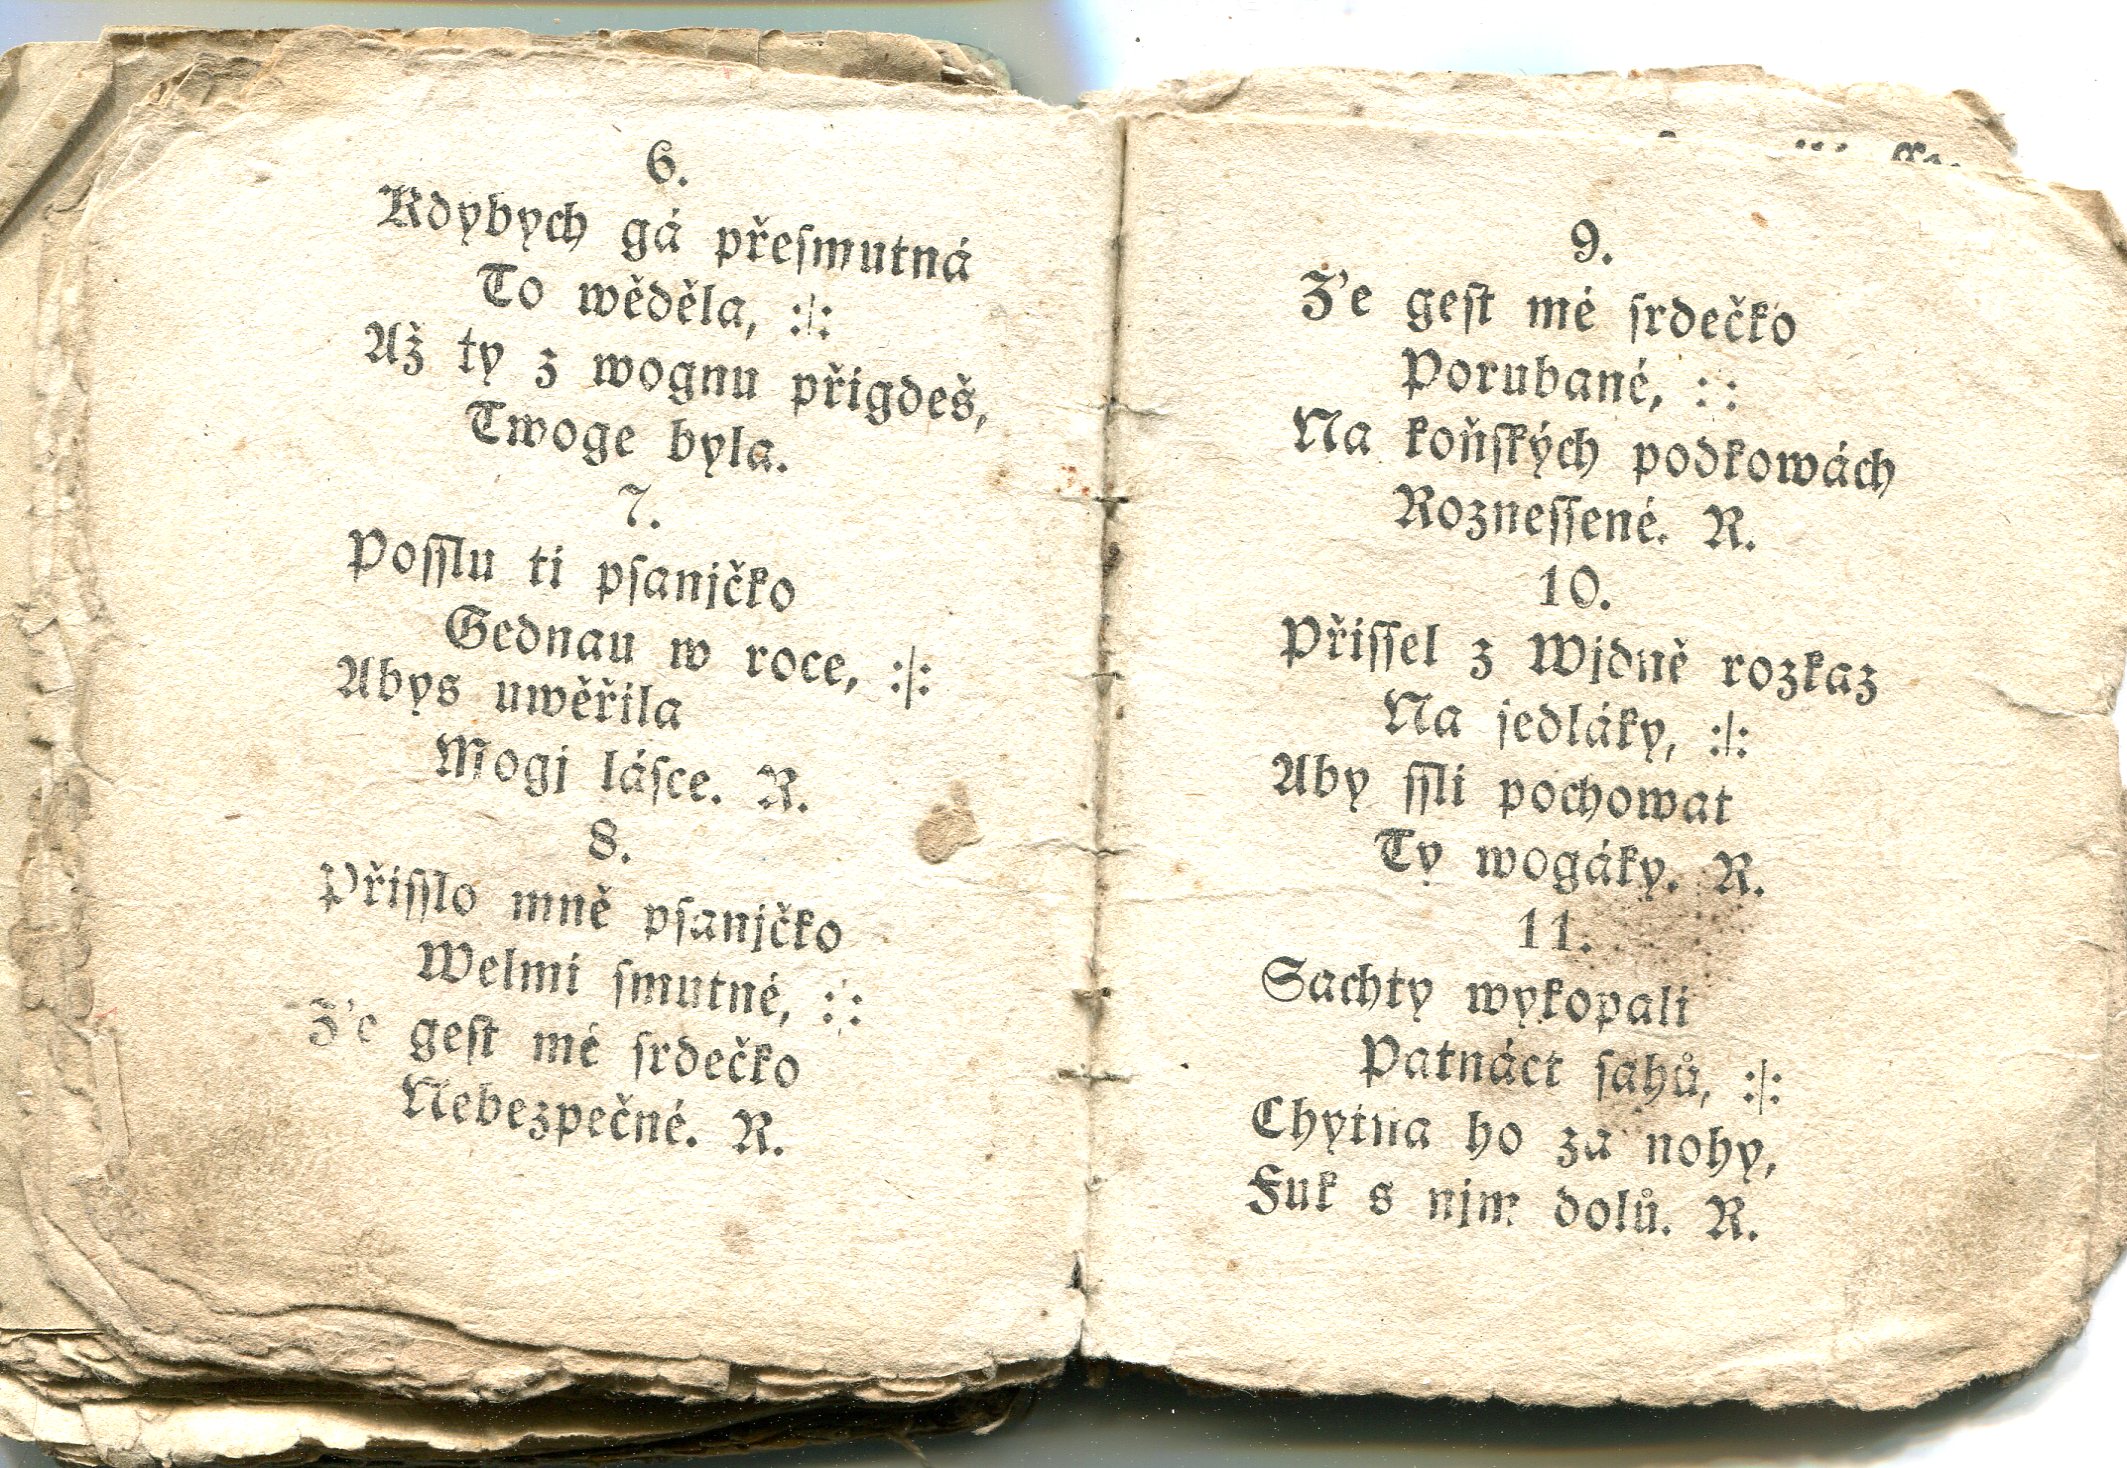 6.
Kdybych gá přeſmutná
To wěděla, :|:
Až ty z wognu přigdeš,
Twoge byla.
7.
Poſſlu ti pſanjčko
Gednau w roce, :|:
Abys uwěřila
Mogi láſce. R.
8.
Přiſſlo mně pſanjčko
Welmi ſmutné, :|:
Z'e geſt mé ſrdečko
Nebezpečné. R.
9.
Z'e geſt mé ſrdečko
Porubané, : :
Na koňſkých podkowách
Rozneſſené. R.
10.
Přiſſel z Wjdně rozkaz
Na ſedláky, :|:
Aby ſſli pochowat
Ty wogáky. R.
11.
Sachty wykopali
Patnáct ſahů, :|:
Chytna ho za nohy,
Fuk s njm dolů. R.